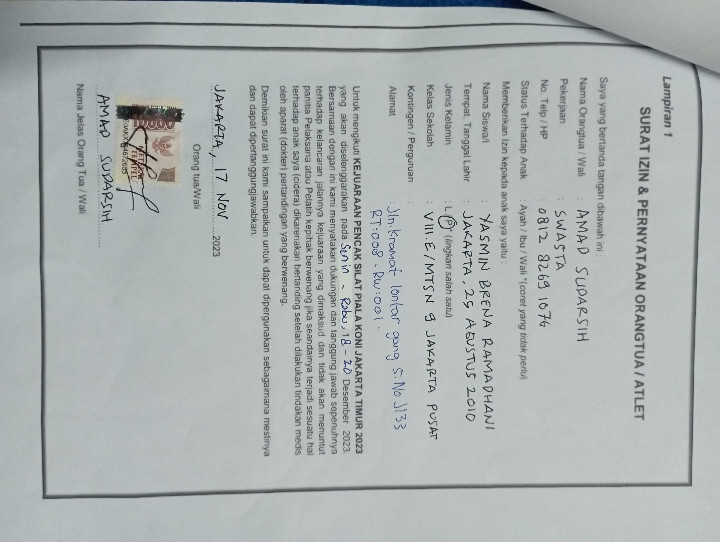 Lampiran 1
SURAT IZIN & PERNYATAAN ORANGTUA / ATLET
Saya yang bertanda tangan dibawah ini :
Nama Orangtua / Wali : AMAD SUDARSIH
Pekerjaan : SWASTA
No. Telp / HP : 0812 8269 1076
Status Terhadap Anak : Ayah / Ibu / Wali *(coret yang tidak perlu)
Memberikan Izin kepada anak saya yaitu :
Nama Siswa/i : YASMIN BRENA RAMADHANI
Tempat, Tanggal Lahir : JAKARTA, 25 AGUSTUS 2010
Jenis Kelamin : L / P (lingkari salah satu)
Kelas Sekolah : VIII.E / MTSN 9 JAKARTA PUSAT
Kontingen / Perguruan :
Alamat : Jln. Kramat lontar gang 5. No J133
RT:008 - RW:001.
Untuk mengikuti KEJUARAAN PENCAK SILAT PIALA KONI JAKARTA TIMUR 2023
yang akan diselenggarakan pada Senin - Rabu, 18 - 20 Desember 2023.
Bersamaan dengan ini kami menyatakan dukungan dan tanggung jawab sepenuhnya
terhadap kelancaran jalannya kejuaraan yang dimaksud dan tidak akan menuntut
panitia Pelaksana atau Pelatih kepihak berwenang jika seandainya terjadi sesuatu hal
terhadap anak saya (cidera) dikarenakan bertanding setelah dilakukan tindakan medis
oleh aparat (dokter) pertandingan yang berwenang.
Demikian surat ini kami sampaikan untuk dapat dipergunakan sebagaimana mestinya
dan dapat dipertanggungjawabkan.
JAKARTA, 17 NOV 2023
Orang tua/Wali
TEMPEL
AMAD SUDARSIH
Nama Jelas Orang Tua / Wali